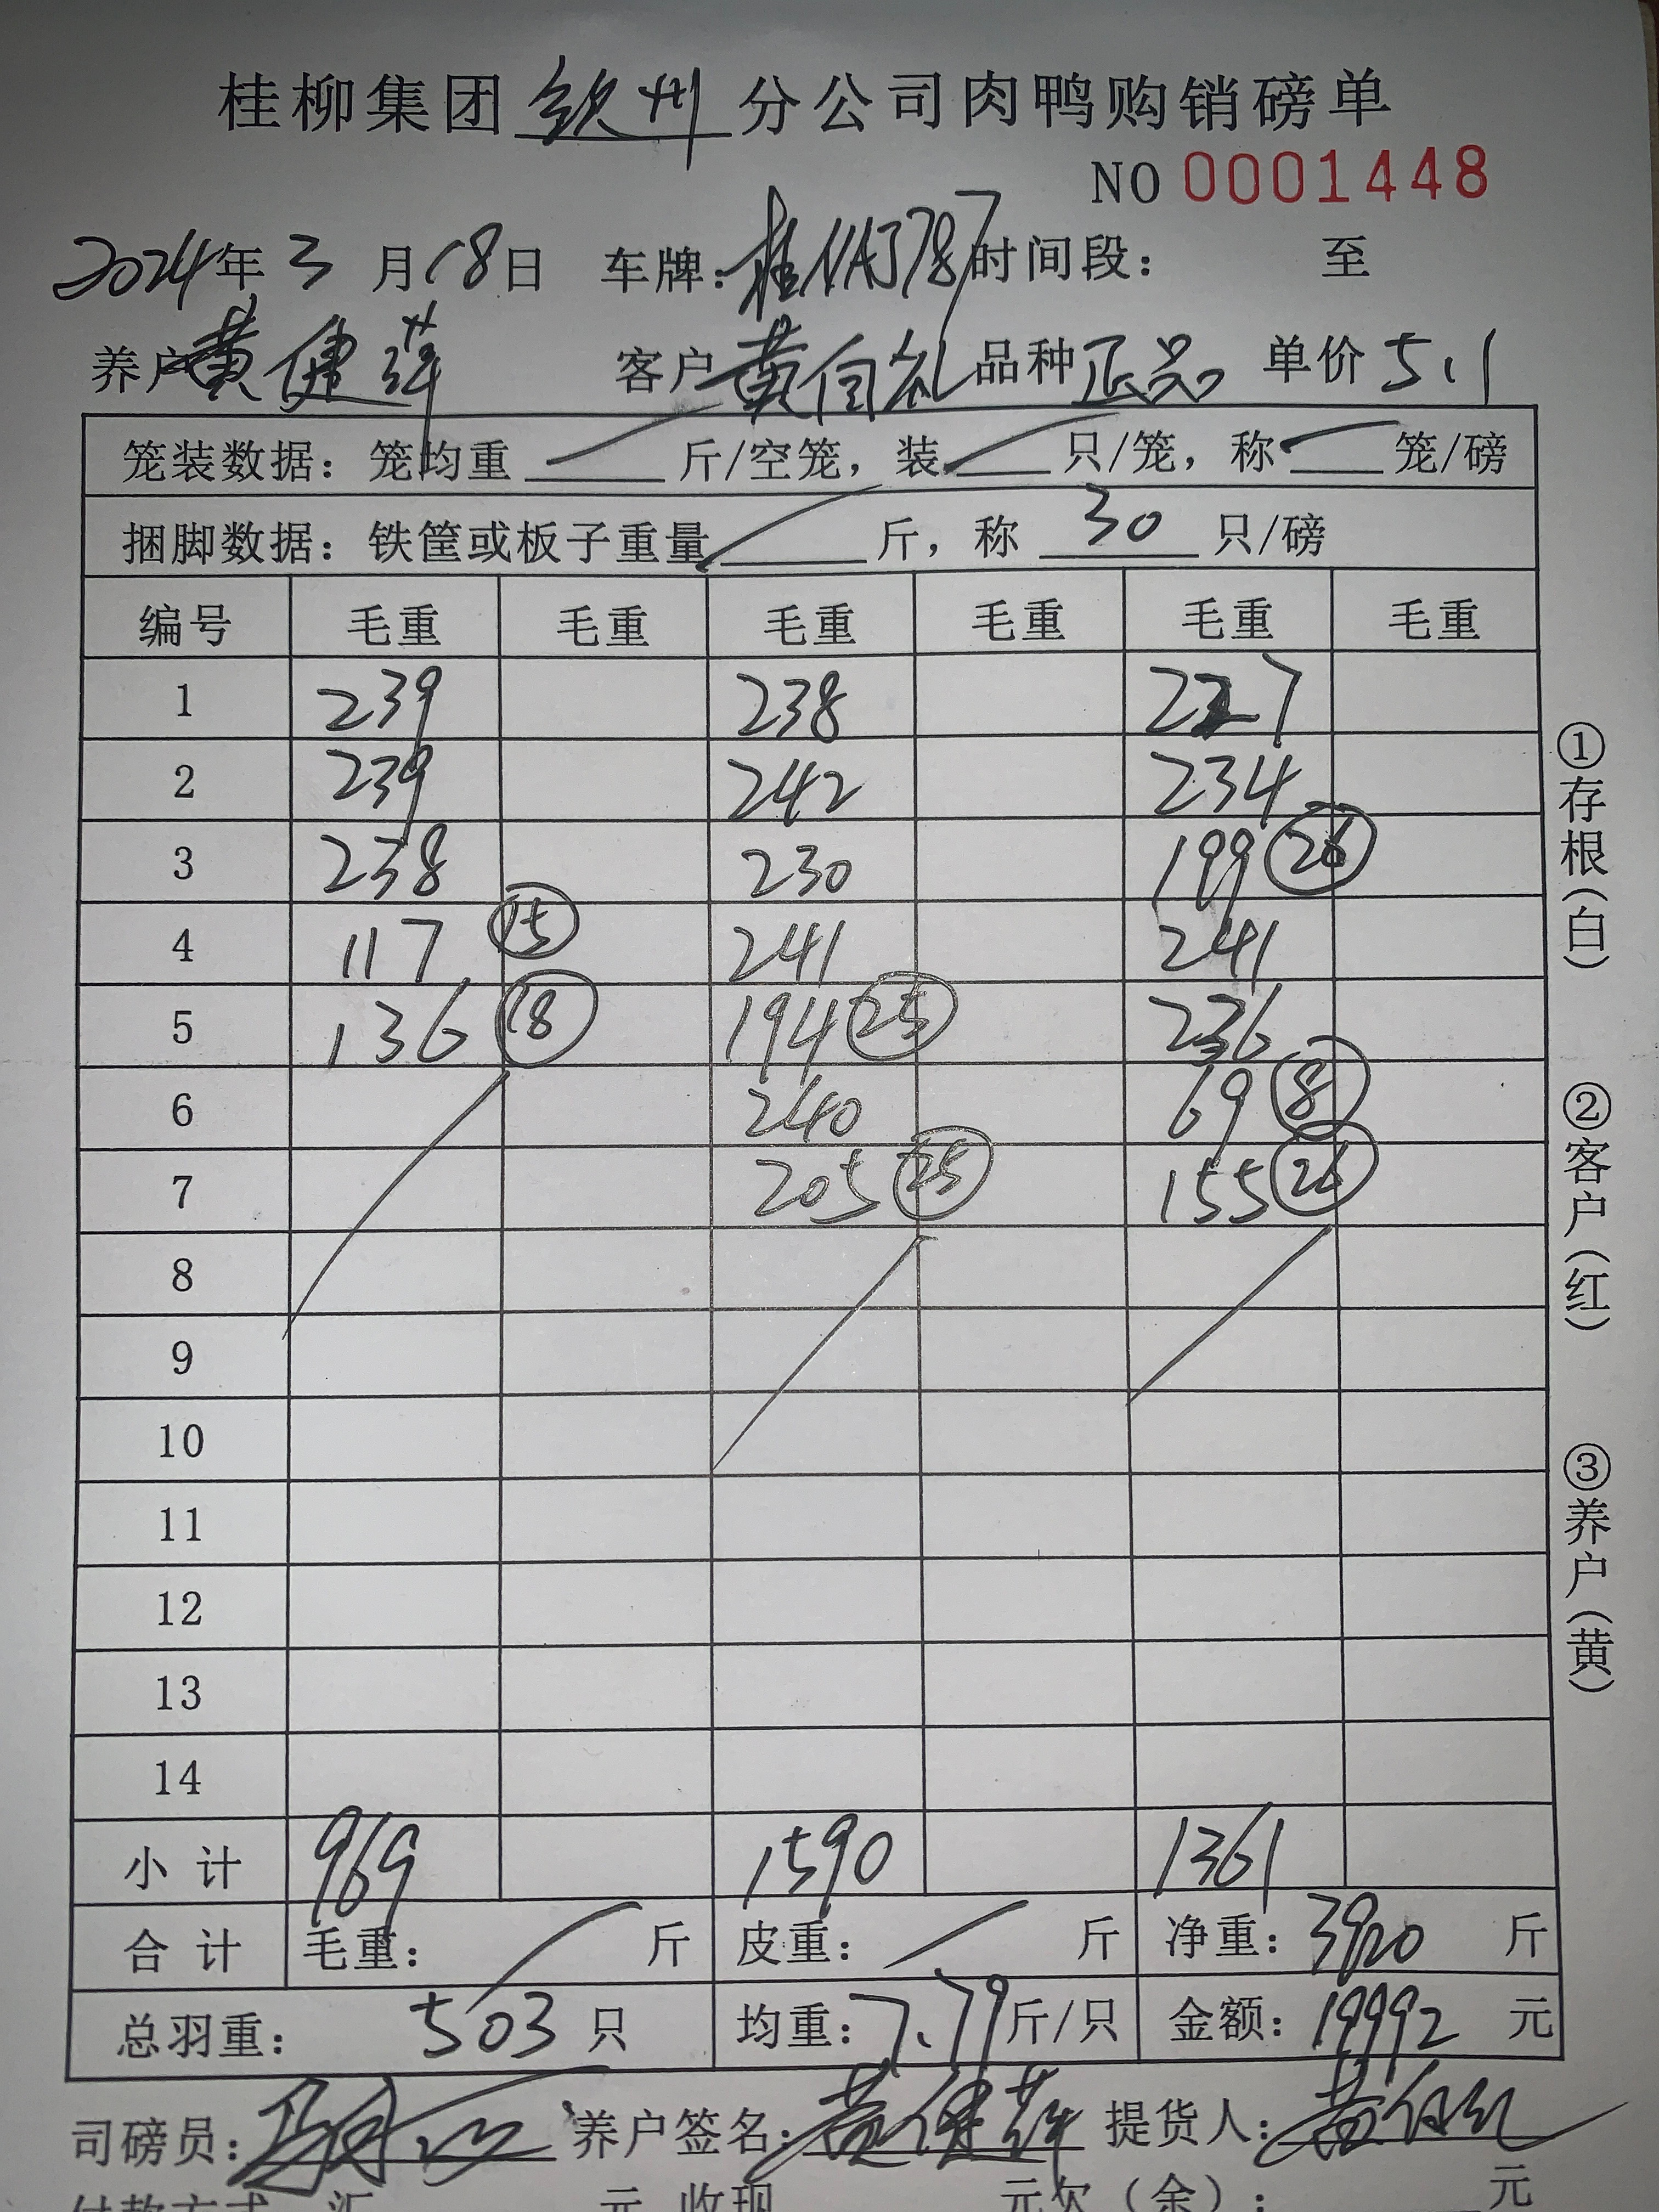 桂柳集团 钦州 分公司肉鸭购销磅单
NO 0001448
2024年 3 月 18日 车牌：桂NA3787 时间段： 至
养户 黄健萍 客户 黄自礼 品种 正品 单价 5.1
笼装数据：笼均重 斤/空笼，装 只/笼，称 笼/磅
捆脚数据：铁筐或板子重量 斤，称 30 只/磅
编号 毛重 毛重 毛重 毛重 毛重 毛重
1 239 238 227
2 239 242 234
3 238 230 199 26
4 117 15 241 241
5 136 18 194 25 236
6 240 69 8
7 205 25 155 26
8
9
10
11
12
13
14
小 计 969 1590 1361
合 计 毛重： 斤 皮重： 斤 净重：3920 斤
总羽重： 503 只 均重：7.79 斤/只 金额：19992 元
司磅员： 养户签名：黄健萍 提货人：黄自礼
付款方式 汇 元 收现 元欠（余）： 元
①存根（白）
②客户（红）
③养户（黄）